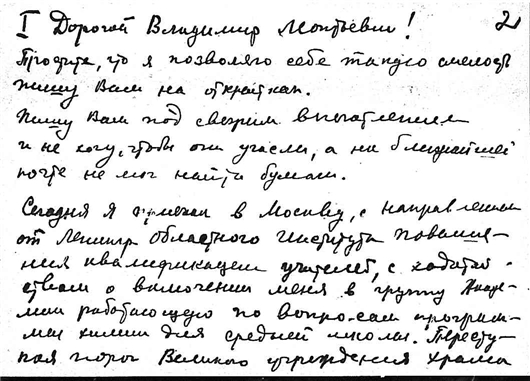 I Дорогой Владимир Леонтьевич! 2
Простите, что я позволяю себе такую смелость
пишу Вам на открытках.
Пишу Вам под свежим впечатлением
и не хочу, чтобы они угасли, а на ближайшей
почте не мог найти бумаги.
Сегодня я приехал в Москву, с направлением
от Ленингр Областного Института повыше-
ния квалификации учителей, с ходатай-
ством о включении меня в группу
работающую по вопросам програм-
мы химии для средней школы. Пересту-
пая порог Великого учреждения храма